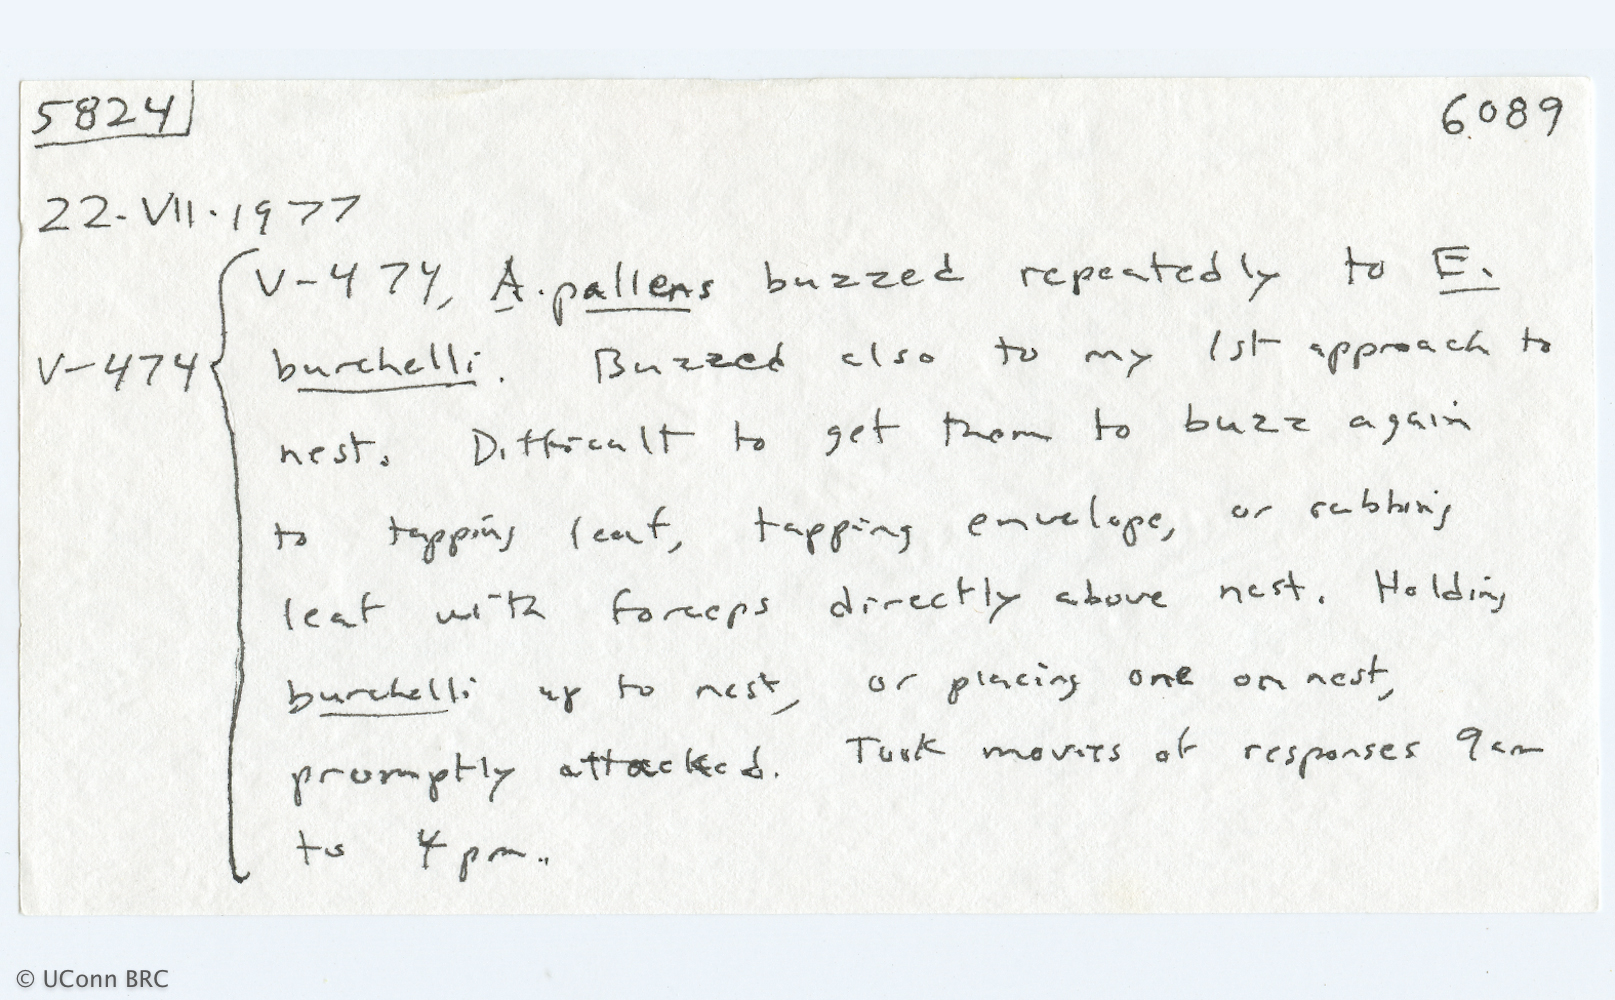 5824 6089
22-VII-1977
V-474, A. pallens buzzed repeatedly to E.
V-474 burchelli. Buzzed also to my 1st approach to
nest. Difficult to get them to buzz again
to tapping leaf, tapping envelope, or rubbing
leaf with forceps directly above nest. Holding
burchelli up to nest, or placing one on nest,
promptly attacked. Took movies of responses 9am
to 4pm.
© UConn BRC